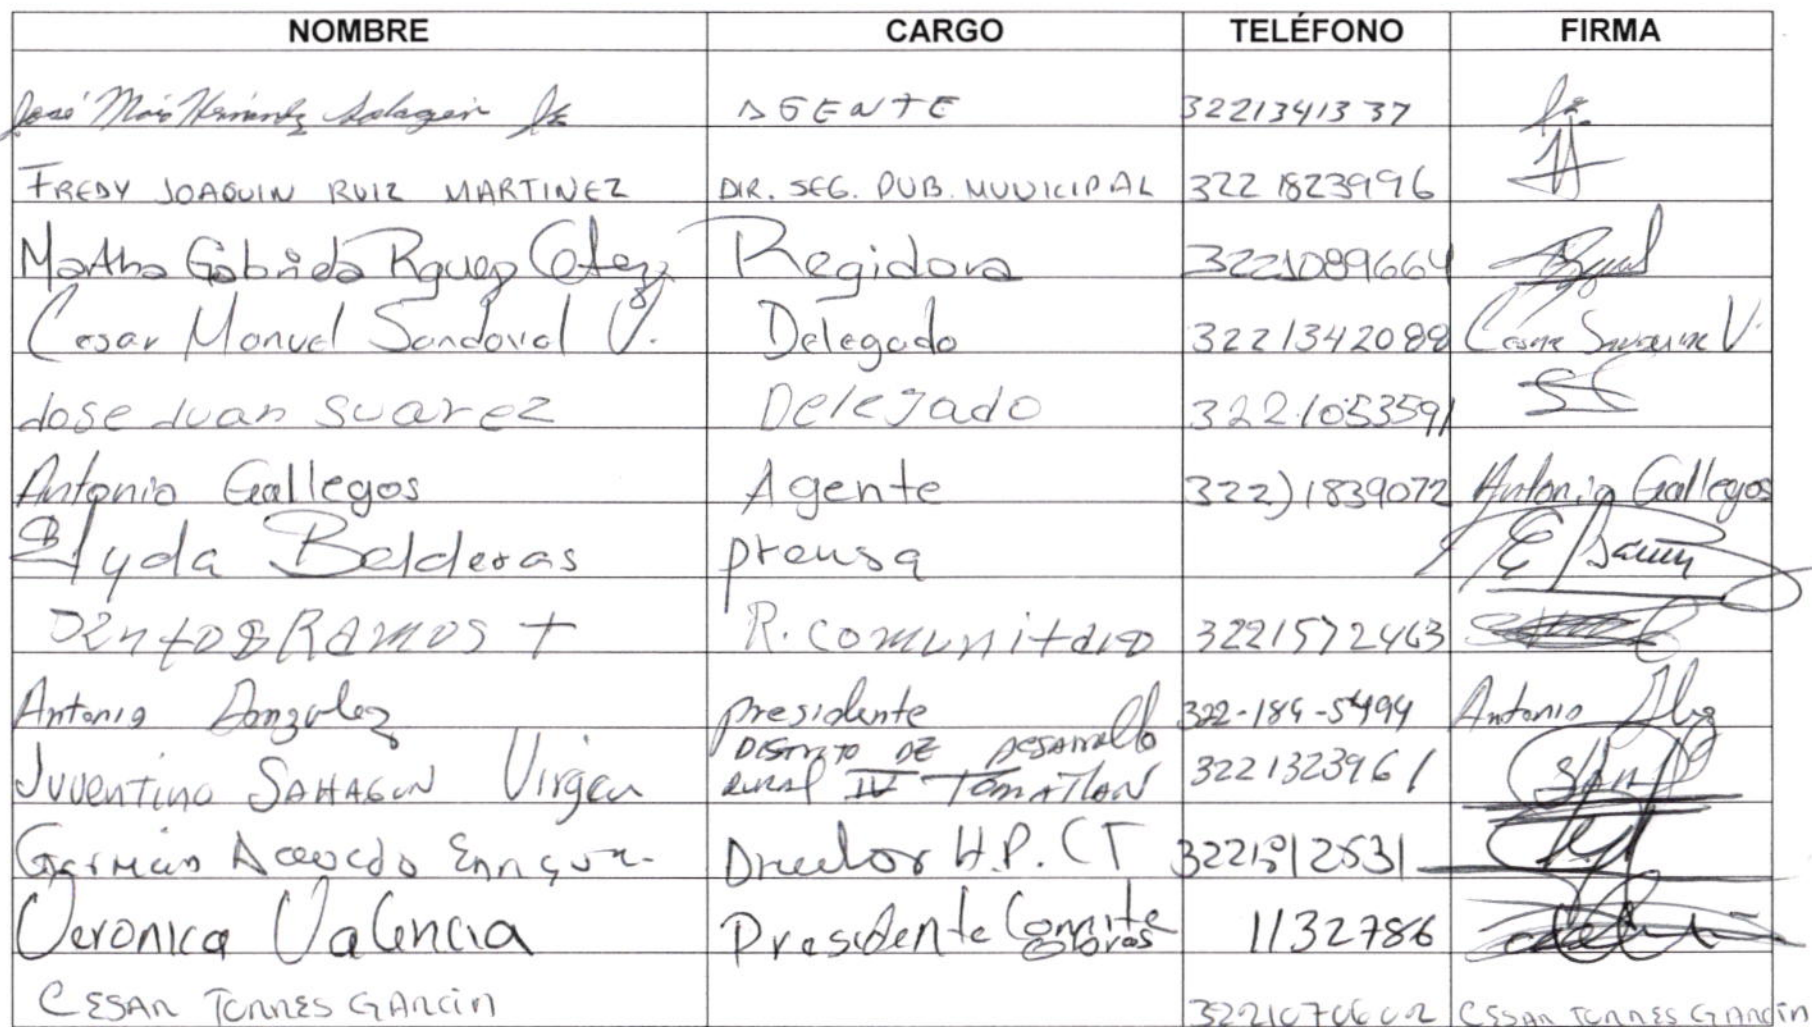 NOMBRE CARGO TELÉFONO FIRMA
José Hernández AGENTE 3221341337
FREDY JOAQUIN RUIZ MARTINEZ DIR. SEG. PUB. MUNICIPAL 322 1823996
Martha Gabriela Rguez Regidora 3221089664
Cesar Manuel Sandoval V. Delegado 3221342088 Cesar Sandoval V.
Jose Juan Suarez Delegado 3221053591
Antonio Gallegos Agente 322)1839072 Antonio Gallegos
Elyda Balderas prensa
RAMOS R. comunitario 3221572463
Antonio Gonzalez presidente 322-189-5494 Antonio
Juventino SAHAGUN Virgen DISTRITO DE DESARROLLO
RURAL IV TOMATLAN 3221323961
German Acevedo Director H.P. CT
Veronica Valencia Presidente Comite 1132786
CESAR TORRES GARCIA CESAR TORRES GARCIA